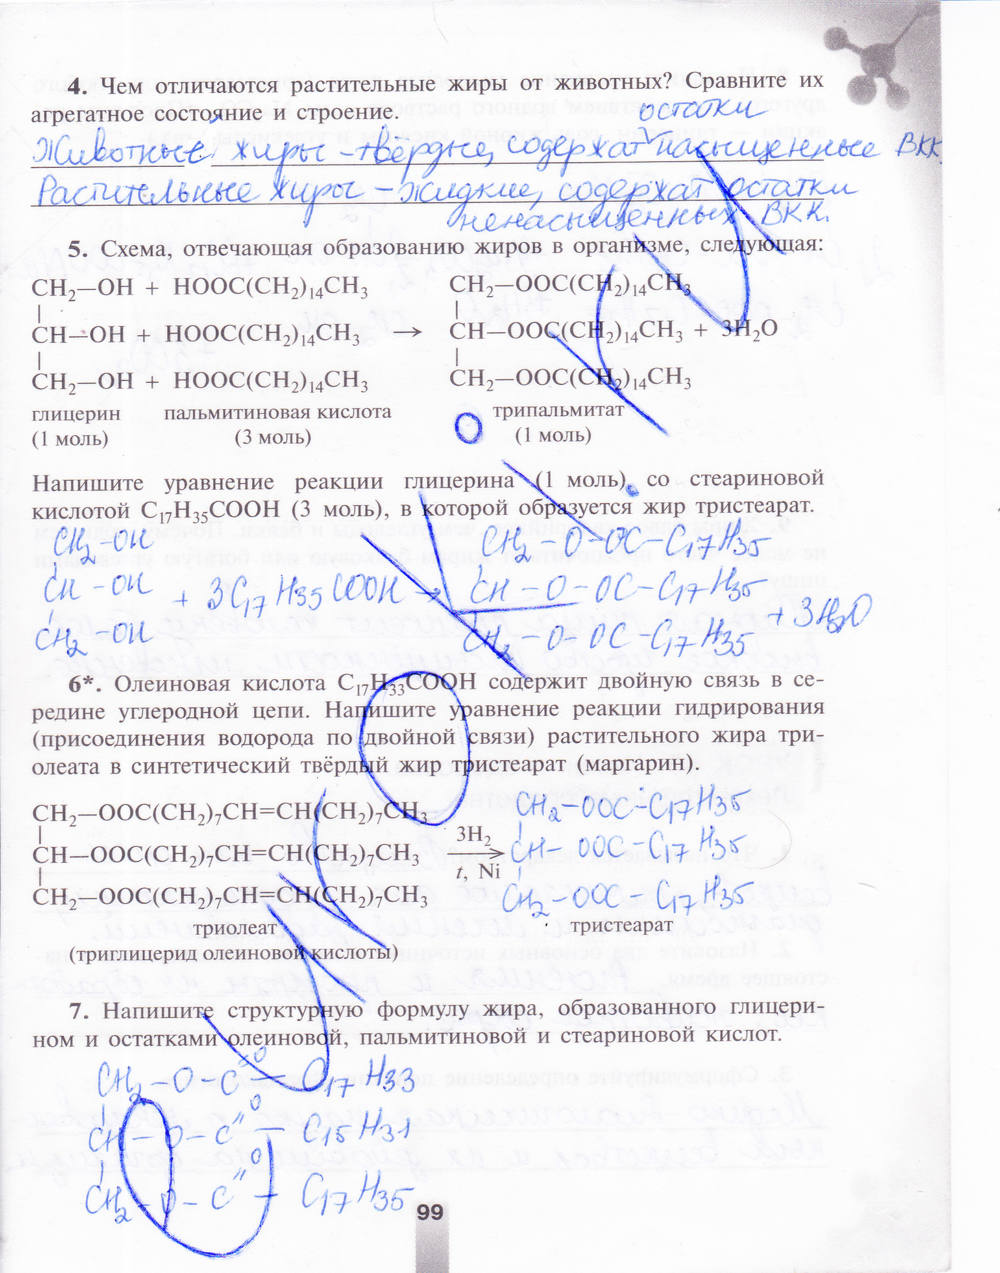 4. Чем отличаются растительные жиры от животных? Сравните их
агрегатное состояние и строение.
остатки
Животные жиры – твёрдые, содержат насыщенные ВКК.
Растительные жиры – жидкие, содержат остатки
ненасыщенных ВКК.
5. Схема, отвечающая образованию жиров в организме, следующая:
CH₂—OH + HOOC(CH₂)₁₄CH₃ CH₂—OOC(CH₂)₁₄CH₃
CH—OH + HOOC(CH₂)₁₄CH₃ → CH—OOC(CH₂)₁₄CH₃ + 3H₂O
CH₂—OH + HOOC(CH₂)₁₄CH₃ CH₂—OOC(CH₂)₁₄CH₃
глицерин пальмитиновая кислота трипальмитат
(1 моль) (3 моль) (1 моль)
Напишите уравнение реакции глицерина (1 моль) со стеариновой
кислотой C₁₇H₃₅COOH (3 моль), в которой образуется жир тристеарат.
CH₂-OH CH₂-O-OC-C₁₇H₃₅
CH-OH + 3C₁₇H₃₅COOH → CH-O-OC-C₁₇H₃₅ + 3H₂O
CH₂-OH CH₂-O-OC-C₁₇H₃₅
6*. Олеиновая кислота C₁₇H₃₃COOH содержит двойную связь в се-
редине углеродной цепи. Напишите уравнение реакции гидрирования
(присоединения водорода по двойной связи) растительного жира три-
олеата в синтетический твёрдый жир тристеарат (маргарин).
CH₂—OOC(CH₂)₇CH=CH(CH₂)₇CH₃ CH₂-OOC-C₁₇H₃₅
CH—OOC(CH₂)₇CH=CH(CH₂)₇CH₃ 3H₂ t, Ni → CH-OOC-C₁₇H₃₅
CH₂—OOC(CH₂)₇CH=CH(CH₂)₇CH₃ CH₂-OOC-C₁₇H₃₅
триолеат тристеарат
(триглицерид олеиновой кислоты)
7. Напишите структурную формулу жира, образованного глицери-
ном и остатками олеиновой, пальмитиновой и стеариновой кислот.
CH₂-O-C=O – C₁₇H₃₃
CH-O-C=O – C₁₅H₃₁
CH₂-O-C=O – C₁₇H₃₅
99